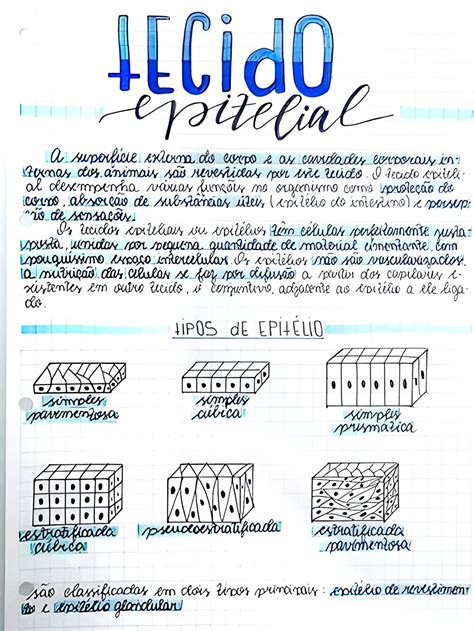 tECidO
epitelial
A superfície externa do corpo e as cavidades corporais in-
ternas dos animais são revestidas por este tecido. O tecido epiteli-
al desempenha várias funções no organismo como proteção do
corpo, absorção de substâncias úteis (epitélio do intestino) e percep-
ção de sensações.
Os tecidos epiteliais ou epitélios têm células perfeitamente justa-
postas, unidas por pequena quantidade de material cimentante, com
pouquíssimo espaço intercelular. Os epitélios não são vascularizados,
a nutrição das células se faz por difusão a partir dos capilares e-
xistentes em outro tecido, o conjuntivo, adjacente ao epitélio a ele liga-
do.
tIPOS dE EPITÉLIO
simples
pavimentosa
simples
cúbica
simples
prismática
estratificada
cúbica
pseudoestratificada
estratificada
pavimentosa
são classificadas em dois tipos principais: epitélio de revestimen-
to e epitélio glandular